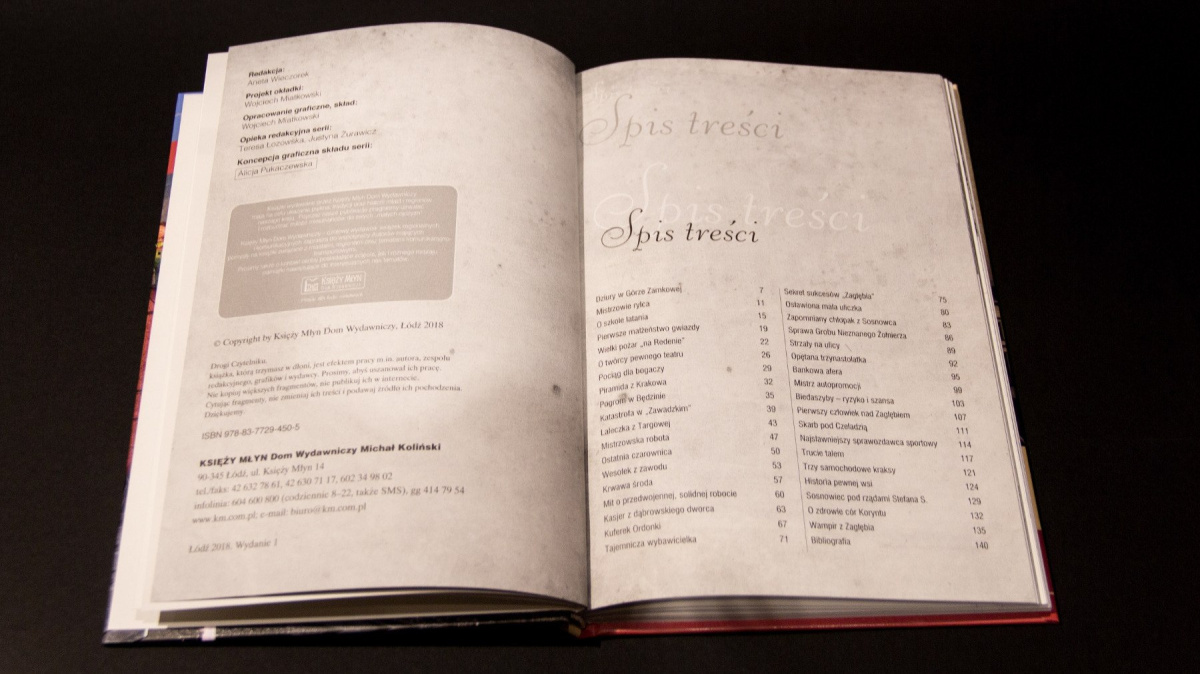 Redakcja:
Aneta Wieczorek
Projekt okładki:
Wojciech Miatkowski
Opracowanie graficzne, skład:
Wojciech Miatkowski
Opieka redakcyjna serii:
Teresa Łozowska, Justyna Żurawicz
Koncepcja graficzna składu serii:
Alicja Pukaczewska
KSIĘŻY MŁYN
© Copyright by Księży Młyn Dom Wydawniczy, Łódź 2018
Drogi Czytelniku,
książka, którą trzymasz w dłoni, jest efektem pracy m.in. autora, zespołu
redakcyjnego, grafików i wydawcy. Prosimy, abyś uszanował ich pracę.
Nie kopiuj większych fragmentów, nie publikuj ich w internecie.
Cytując fragmenty, nie zmieniaj ich treści i podawaj źródło ich pochodzenia.
Dziękujemy.
ISBN 978-83-7729-450-5
KSIĘŻY MŁYN Dom Wydawniczy Michał Koliński
90-345 Łódź, ul. Księży Młyn 14
tel./faks: 42 632 78 61, 42 630 71 17, 602 34 98 02
infolinia: 604 600 800 (codziennie 8–22, także SMS), gg 414 79 54
www.km.com.pl; e-mail: biuro@km.com.pl
Łódź 2018. Wydanie 1
Spis treści
Spis treści
Spis treści
Dziury w Górze Zamkowej 7
Mistrzowie rylca 11
O szkole latania 15
Pierwsze małżeństwo gwiazdy 19
Wielki pożar „na Redenie” 22
O twórcy pewnego teatru 26
Pociąg dla bogaczy 29
Piramida z Krakowa 32
Pogrom w Będzinie 35
Katastrofa w „Zawadzkim” 39
Laleczka z Targowej 43
Mistrzowska robota 47
Ostatnia czarownica 50
Wesołek z zawodu 53
Krwawa środa 57
Mit o przedwojennej, solidnej robocie 60
Kasjer z dąbrowskiego dworca 63
Kuferek Ordonki 67
Tajemnicza wybawicielka 71
Sekret sukcesów „Zagłębia” 75
Ostawiona mała uliczka 80
Zapomniany chłopak z Sosnowca 83
Sprawa Grobu Nieznanego Żołnierza 86
Strzały na ulicy 89
Opętana trzynastolatka 92
Bankowa afera 95
Mistrz autopromocji 99
Biedaszyby – ryzyko i szansa 103
Pierwszy człowiek nad Zagłębiem 107
Skarb pod Czeladzią 111
Najsławniejszy sprawozdawca sportowy 114
Trucie talem 117
Trzy samochodowe kraksy 121
Historia pewnej wsi 124
Sosnowiec pod rządami Stefana S. 129
O zdrowie cór Koryntu 132
Wampir z Zagłębia 135
Bibliografia 140